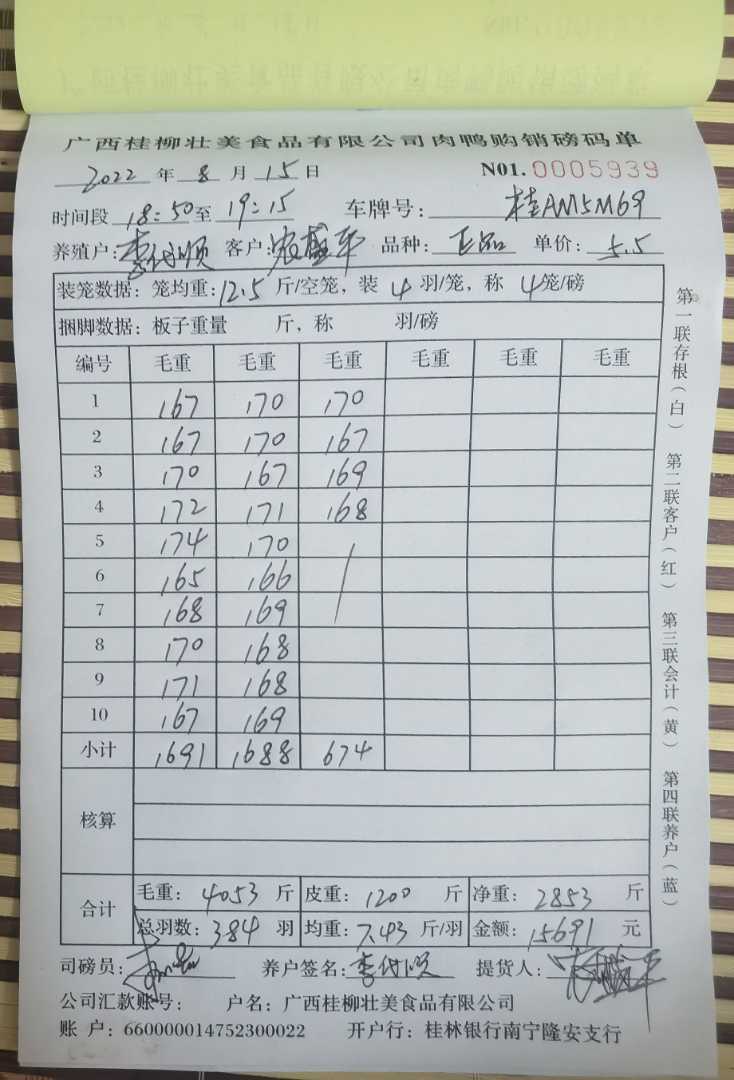 广西桂柳壮美食品有限公司肉鸭购销磅码单
2022 年 8 月 15 日 N01. 0005939
时间段 18:50 至 19:15 车牌号: 桂AM5M69
养殖户: 李代顺 客户: 平 品种: 正品 单价: 5.5
装笼数据: 笼均重: 12.5 斤/空笼, 装 4 羽/笼, 称 4 笼/磅
捆脚数据: 板子重量 斤, 称 羽/磅
编号 毛重 毛重 毛重 毛重 毛重 毛重
1 167 170 170
2 167 170 167
3 170 167 169
4 172 171 168
5 174 170
6 165 166
7 168 169
8 170 168
9 171 168
10 167 169
小计 1691 1688 674
核算
合计 毛重: 4053 斤 皮重: 1200 斤 净重: 2853 斤
总羽数: 384 羽 均重: 7.43 斤/羽 金额: 15691 元
司磅员: 养户签名: 李代顺 提货人: 平
公司汇款账号: 户名: 广西桂柳壮美食品有限公司
账 户: 660000014752300022 开户行: 桂林银行南宁隆安支行
第一联存根(白) 第二联客户(红) 第三联会计(黄) 第四联养户(蓝)